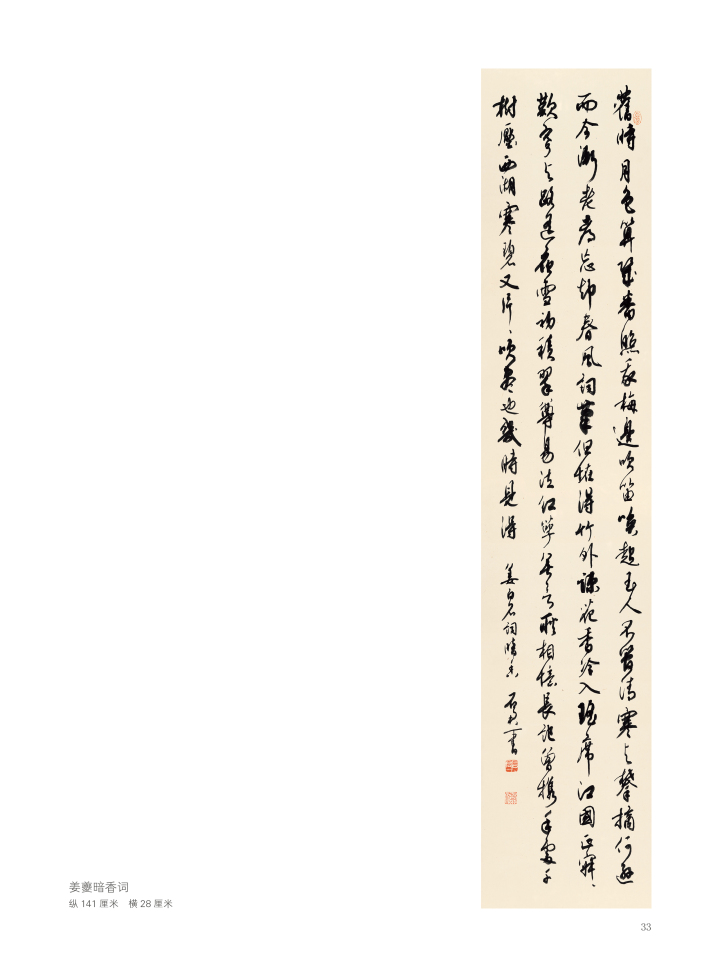 舊時月色算幾番照我梅邊吹笛喚起玉人不管清寒与攀摘何遜
而今漸老都忘却春風詞筆但怪得竹外疎花香冷入瑤席江國正寂、
歎寄与路遙夜雪初積翠尊易泣紅萼無言耿相憶長記曾攜手處千
樹壓西湖寒碧又片、吹盡也幾時見得 姜白石詞暗香 書
姜夔暗香词
纵 141 厘米 横 28 厘米
33